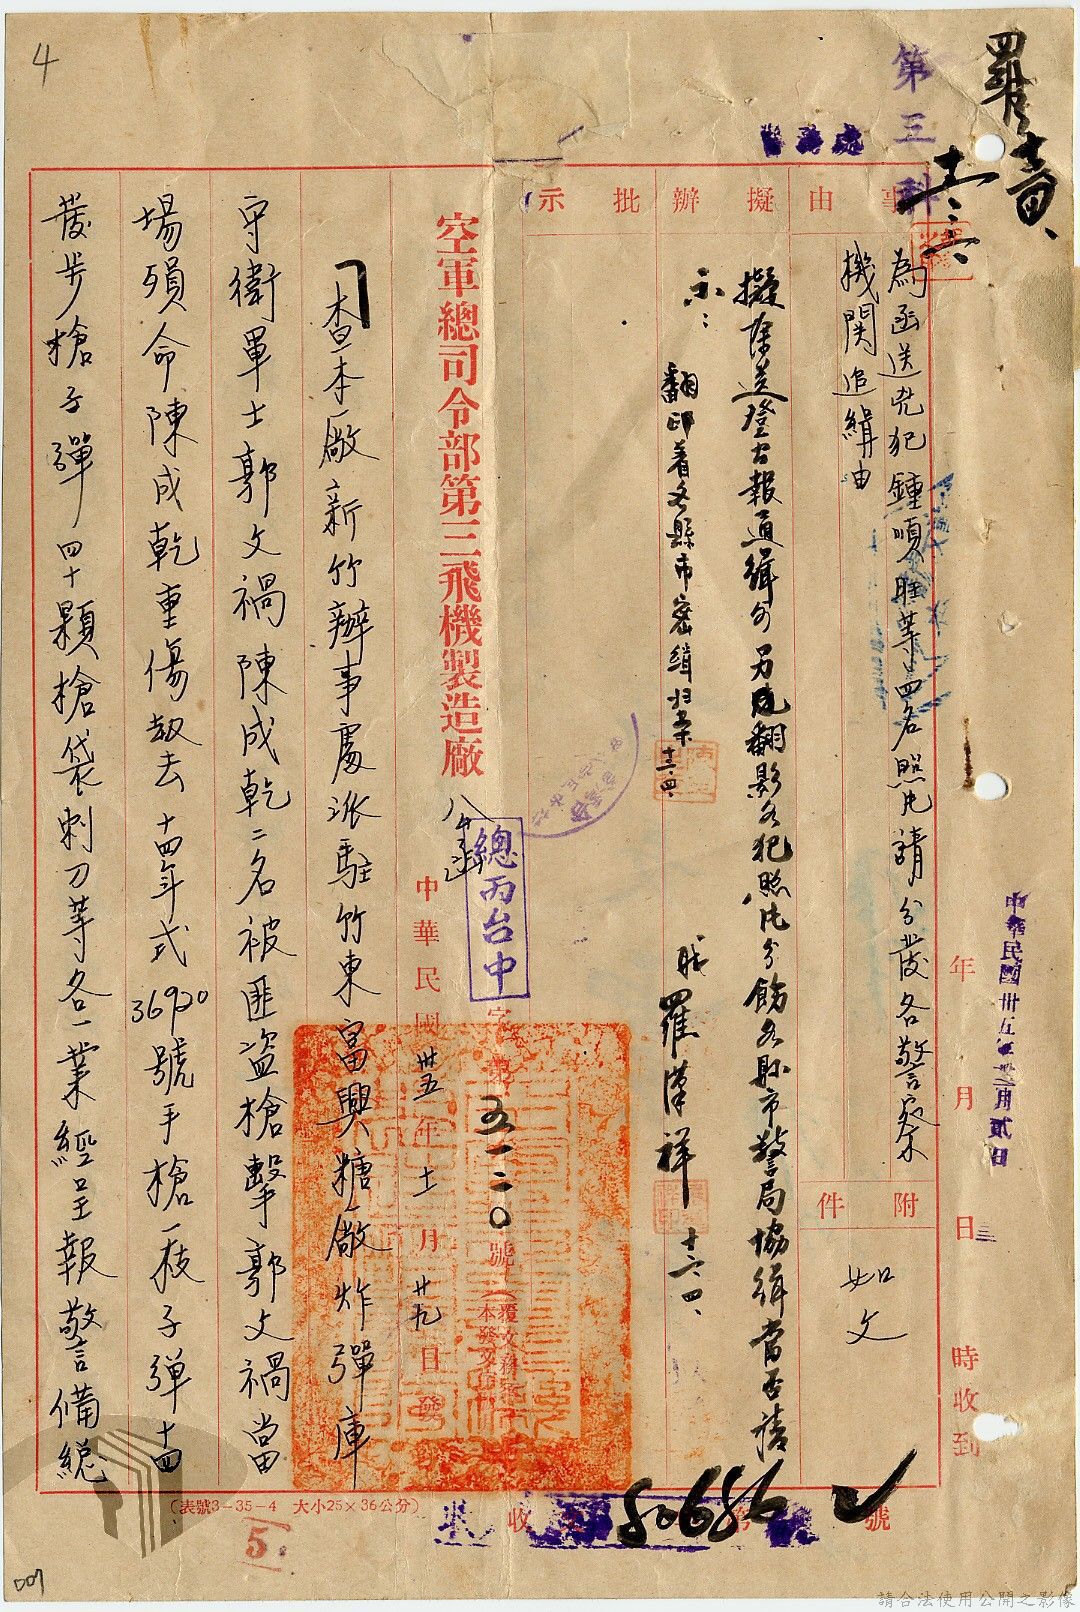 羅
第三科
4
事由
為函送兇犯鍾順旺等四名照片請分發各警察
機関追緝由
附件
如文
中華民國卅五年拾貳月貳日
年 月 日 時收到
擬辦
擬除送登公報通緝外另児翻影各犯照片分飭各縣市警局協緝當否請
示:
職 羅漢祥 十二、四、
翻印着各縣市密緝归案 十二、四、
批示
空軍總司令部第三飛機製造廠
總丙台中
字第五一二〇號
中華民國卅五年十一月廿九日發
查本廠新竹辦事處派駐竹東富興糖廠炸彈庫
守衛軍士郭文禍陳成乾二名被匪盜槍擊郭文禍當
場殞命陳成乾重傷劫去十四年式36920號手槍一枝子彈十四
發步槍子彈四十顆槍袋刺刀等各一業經呈報警備總
(表號3-35-4 大小25×36公分)
5
收 號
80686
007
請合法使用公開之影像